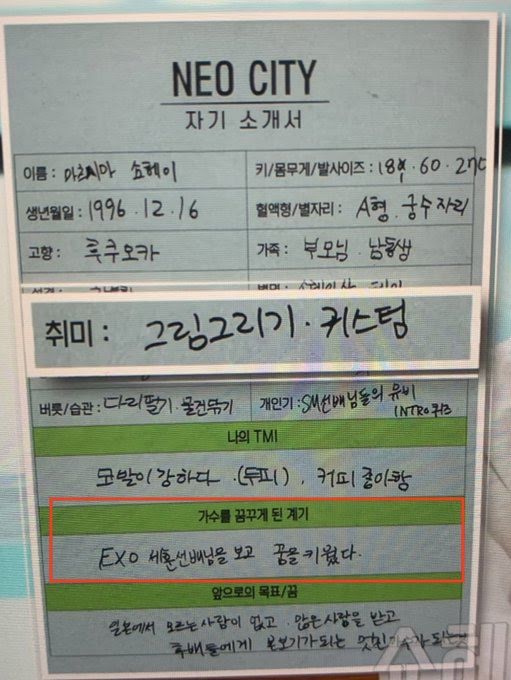 NEO CITY
자기 소개서
이름: 마츠시마 쇼헤이
키/몸무게/발사이즈: 184.60.270
생년월일: 1996.12.16
혈액형/별자리: A형.궁수자리
고향: 후쿠오카
가족: 부모님.남동생
취미: 그림그리기.커스텀
버릇/습관: 다리떨기.물건묶기
개인기: SM선배님들의 뮤비
INTRO퀴즈
나의 TMI
모발이 강하다.(두피), 커피 좋아함
가수를 꿈꾸게 된 계기
EXO 세훈선배님을 보고 꿈을 키웠다.
앞으로의 목표/꿈
일본에서 모르는 사람이 없고.많은 사랑을 받고
후배들에게 본보기가 되는 멋진 가수가 되는
쇼헤